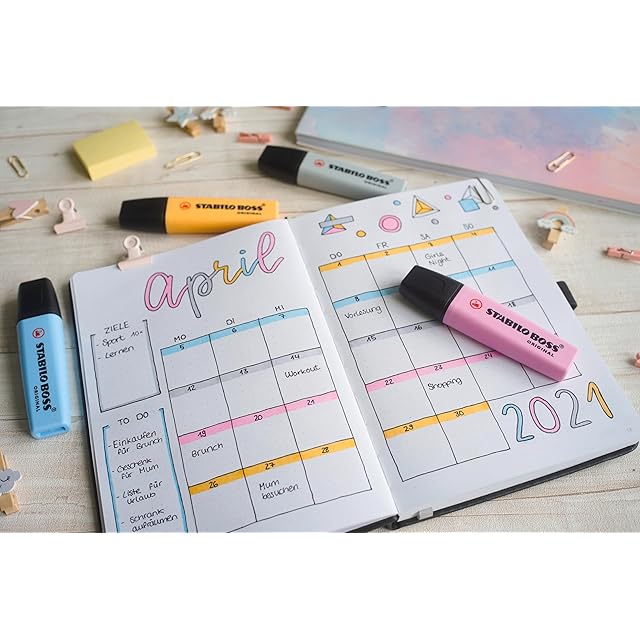 STABILO BOSS
ORIGINAL
STABILO BOSS
ORIGINAL
STABILO BOSS
ORIGINAL
STABILO BOSS
ORIGINAL
april
ZIELE
- Sport 10x
- Lernen
TO DO
- Einkaufen
für Brunch
- Geschenk
für Mum
- Liste für
Urlaub
- Schrank
aufräumen
MO DI MI
5 6 7
12 13 14
Workout
19 20 21
Brunch
26 27 28
Mum
besuchen
DO FR SA SO
1 2 3 4
Girls
Night
8 11
Vorlesung
15 16 18
22 23 24
Shopping
29 30
2021